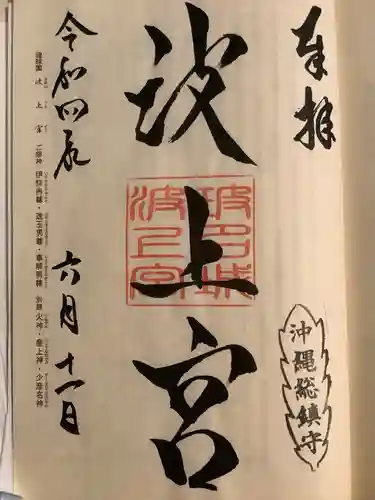 奉拝
沖縄総鎮守
波上宮
令和四年 六月十一日
琉球國 波上宮 ご祭神 伊弉冉尊・速玉男尊・事解男尊 別鎮 火神・産土神・少彦名神